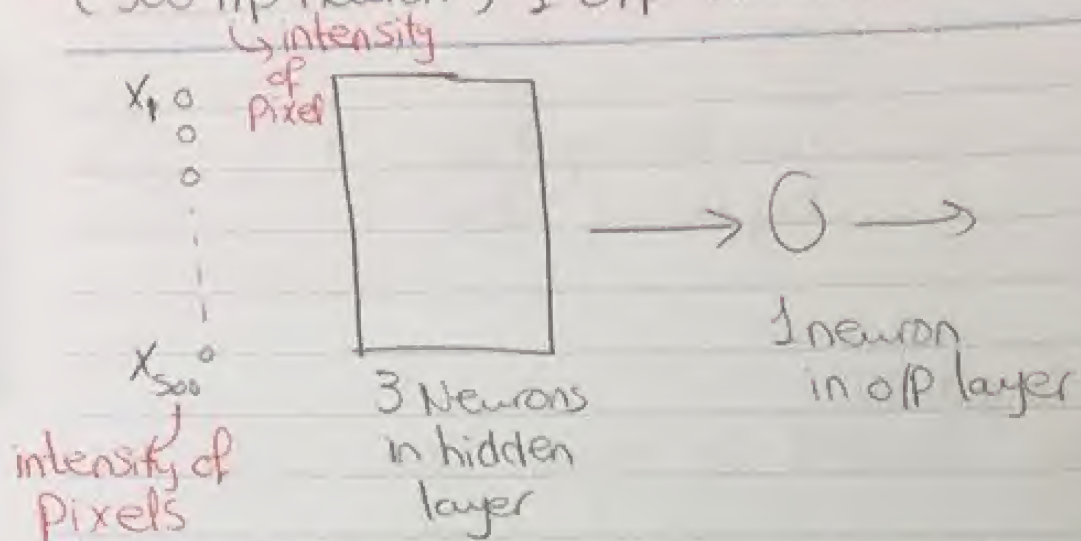 ↳ intensity
of
Pixel
X₁
X₅₀₀
intensity of
Pixels
3 Neurons
in hidden
layer
1 neuron
in o/p layer